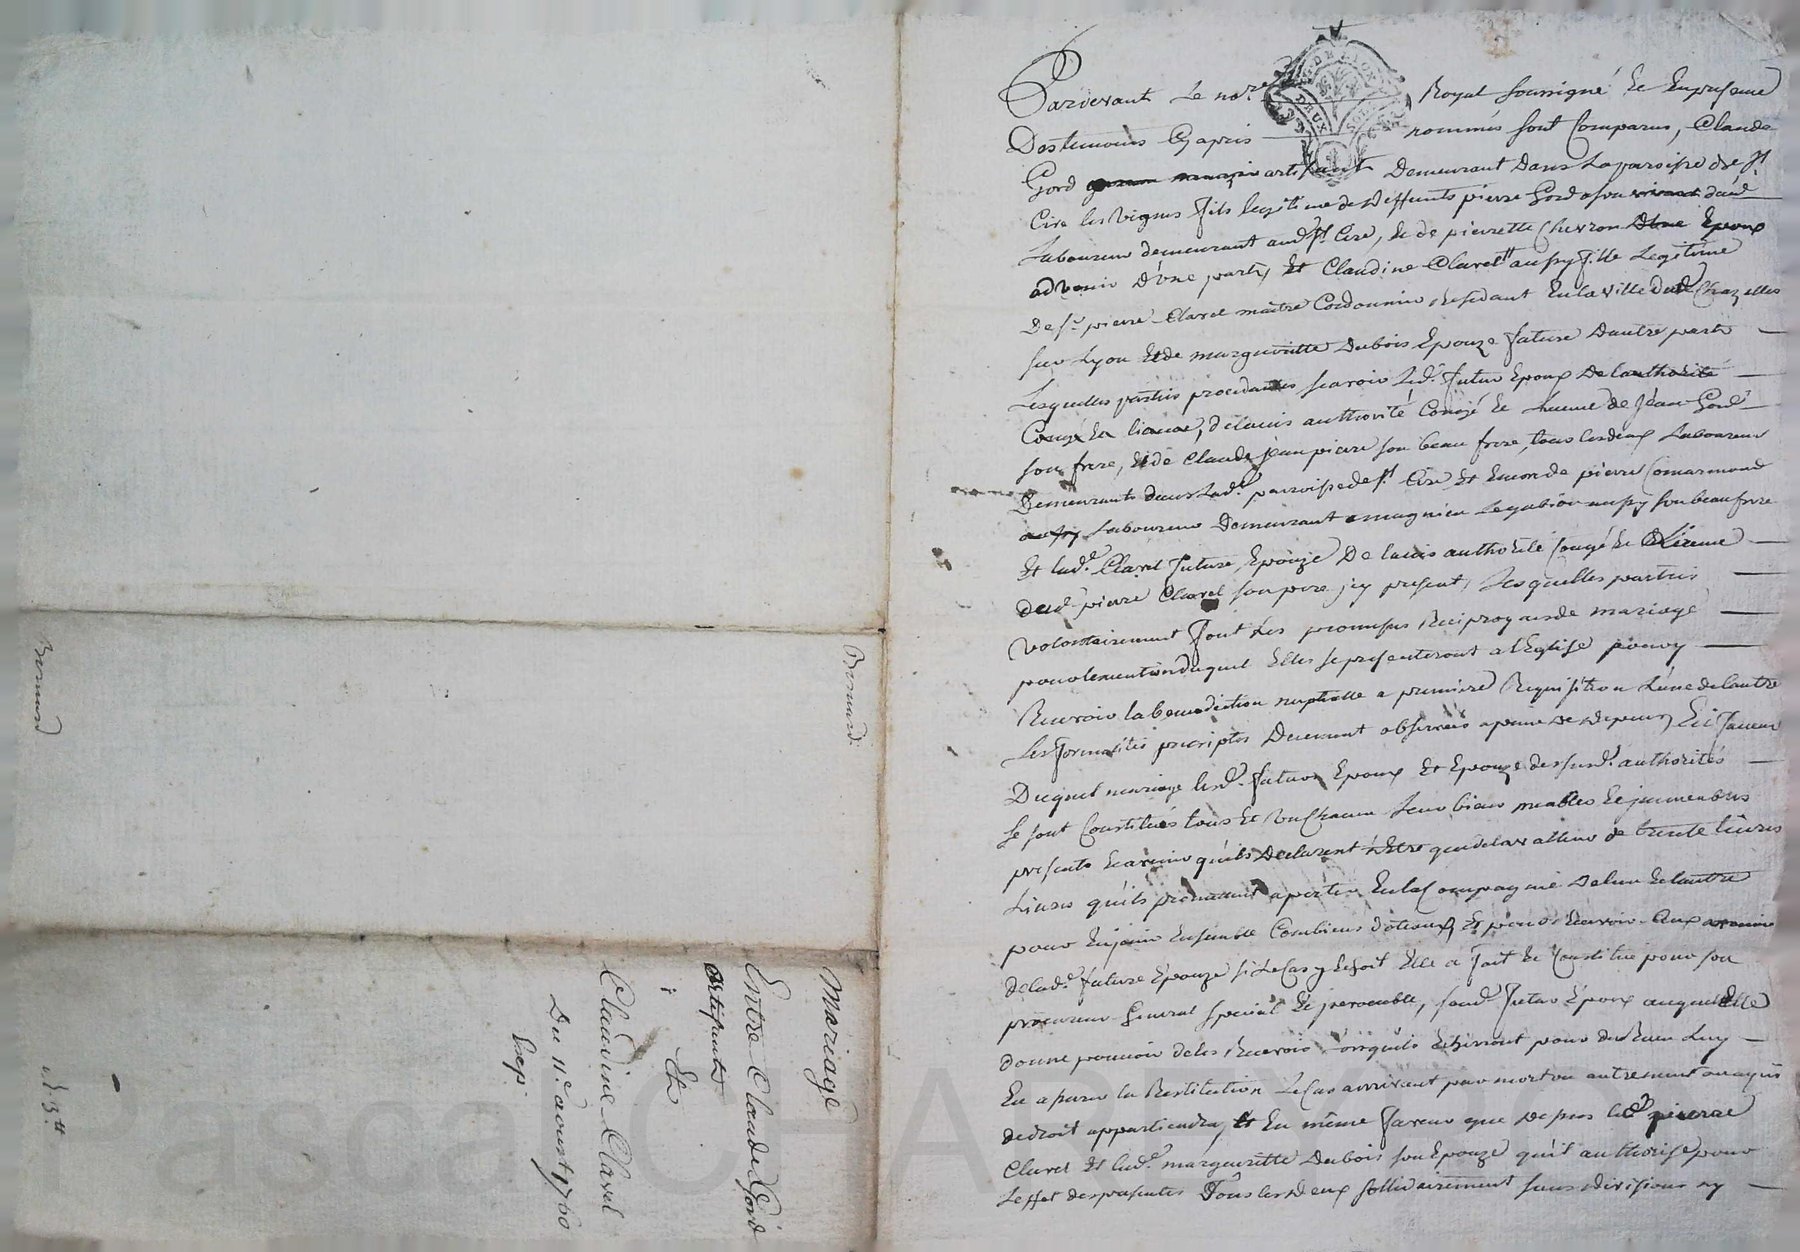 Pardevant Le no.re Royal soussigné Et En presence
Des temoins Cy apres nommés sont Comparus, Claude
Gord artisant Demeurant Dans La paroisse de st
Cire les vignes fils legitime des deffunts pierre Gord
Laboureur demeurant aud. st Cire, Et de pierrette Chevron Epoux
advenir D'une part, Et Claudine Claret aussy fille Legitime
De sr. pierre Claret maitre Cordonnier Residant En la ville de Chazelles
sur Lyon Et de margueritte Dubois Epouze future D'autre part
Lesquelles parties procedantes scavoir Led. futur Epoux De l'authorité
Congé Et licence, de lavis authorité Congé Et licence de jean Gord
son frere, Et de Claude jean pierre son beau frere, tous les deux Laboureurs
Demeurants dans lad. parroisse de st. Cire Et Encor de pierre Comarmond
aussy Laboureur Demeurant a magnieu Legabion aussy son beau frere
Et lad.e Claret future Epouze De lavis authorité Congé Et Licence
dud. pierre Claret son pere jcy present, Lesquelles parties
volontairement font Les promesses Reciproques de mariage
pour lexecution duquel Elles se presenteront a l'Eglise pour y
Recevoir la benediction nuptialle a premiere Requisition Lune de lautre
Les formalités prescriptes Duement observées a peine de depens, En faveur
Duquel mariage lesd. futurs Epoux Et Epouze des susd. authorités
se sont Constitués tous Et Un Chacun Leur biens meubles Et jmmeubles
presents Et avenir qu'ils Declarent n'Etre que de la valleur de trente livres
Liceux qu'ils promettent aporter En la Compagnie De lun Et lautre
pour En jouir Ensemble Comme biens dotaux, Et pour Recevoir Ceux
de lad.e future Epouze si Le Cas y Echoit Elle a fait Et Constitué pour son
procureur General special Et jrrevocable, sond. futur Epoux auquel Elle
donne pouvoir de les Recevoir pour du tout Luy
En a purer la Restitution Le Cas arrivant par mort ou autrement a qui
de droit appartiendra, Et En même faveur que Dessus led. pierre
Claret Et lad.e margueritte Dubois son Epouze qu'il authorise pour
Leffet des presentes Tous les Deux sollidairement sans division ny
Bernard
Bernard
Mariage
Entre Claude Gord
artisant
Et
Claudine Claret
Du 11.e aoust 1760
Exp.